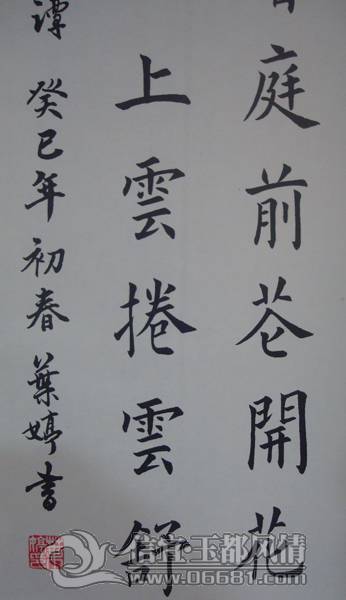 庭前花開花
上雲捲雲舒
譚 癸巳年初春 葉婷書
信宜玉都风情
www.06681.com